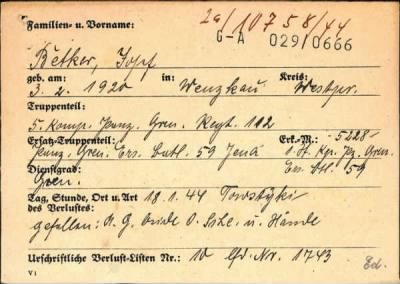 2a/10758/44
Familien- u. Vorname: G-A 029/0666
Betker, Josef
geb. am: in: Kreis:
3. 2. 1920 Wenzkau Westpr.
Truppenteil:
5. Komp. Panz. Gren. Regt. 112
Ersatz-Truppenteil: Erk.-M.: 5228
Panz. Gren. Ers. Batl. 59 Jena 1. St. Kp. Pz. Gren.
Dienstgrad: Ers. Btl. 59
Gren.
Tag, Stunde, Ort u. Art 18. 1. 44
des Verlustes:
gefallen: A. G. beide O. Schl. u. Hände
Urschriftliche Verlust-Listen Nr.: 10 lfd. Nr. 1743
VI